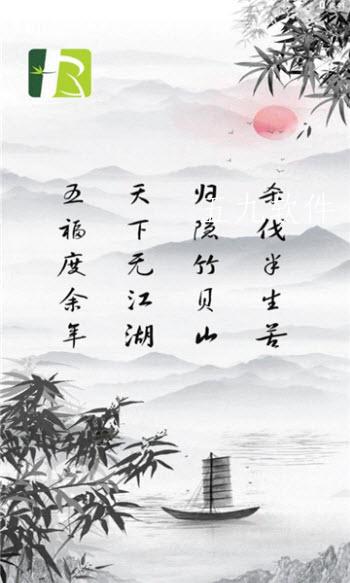 杀伐半生苦
归隐竹贝山
天下无江湖
五福度余年
九软件